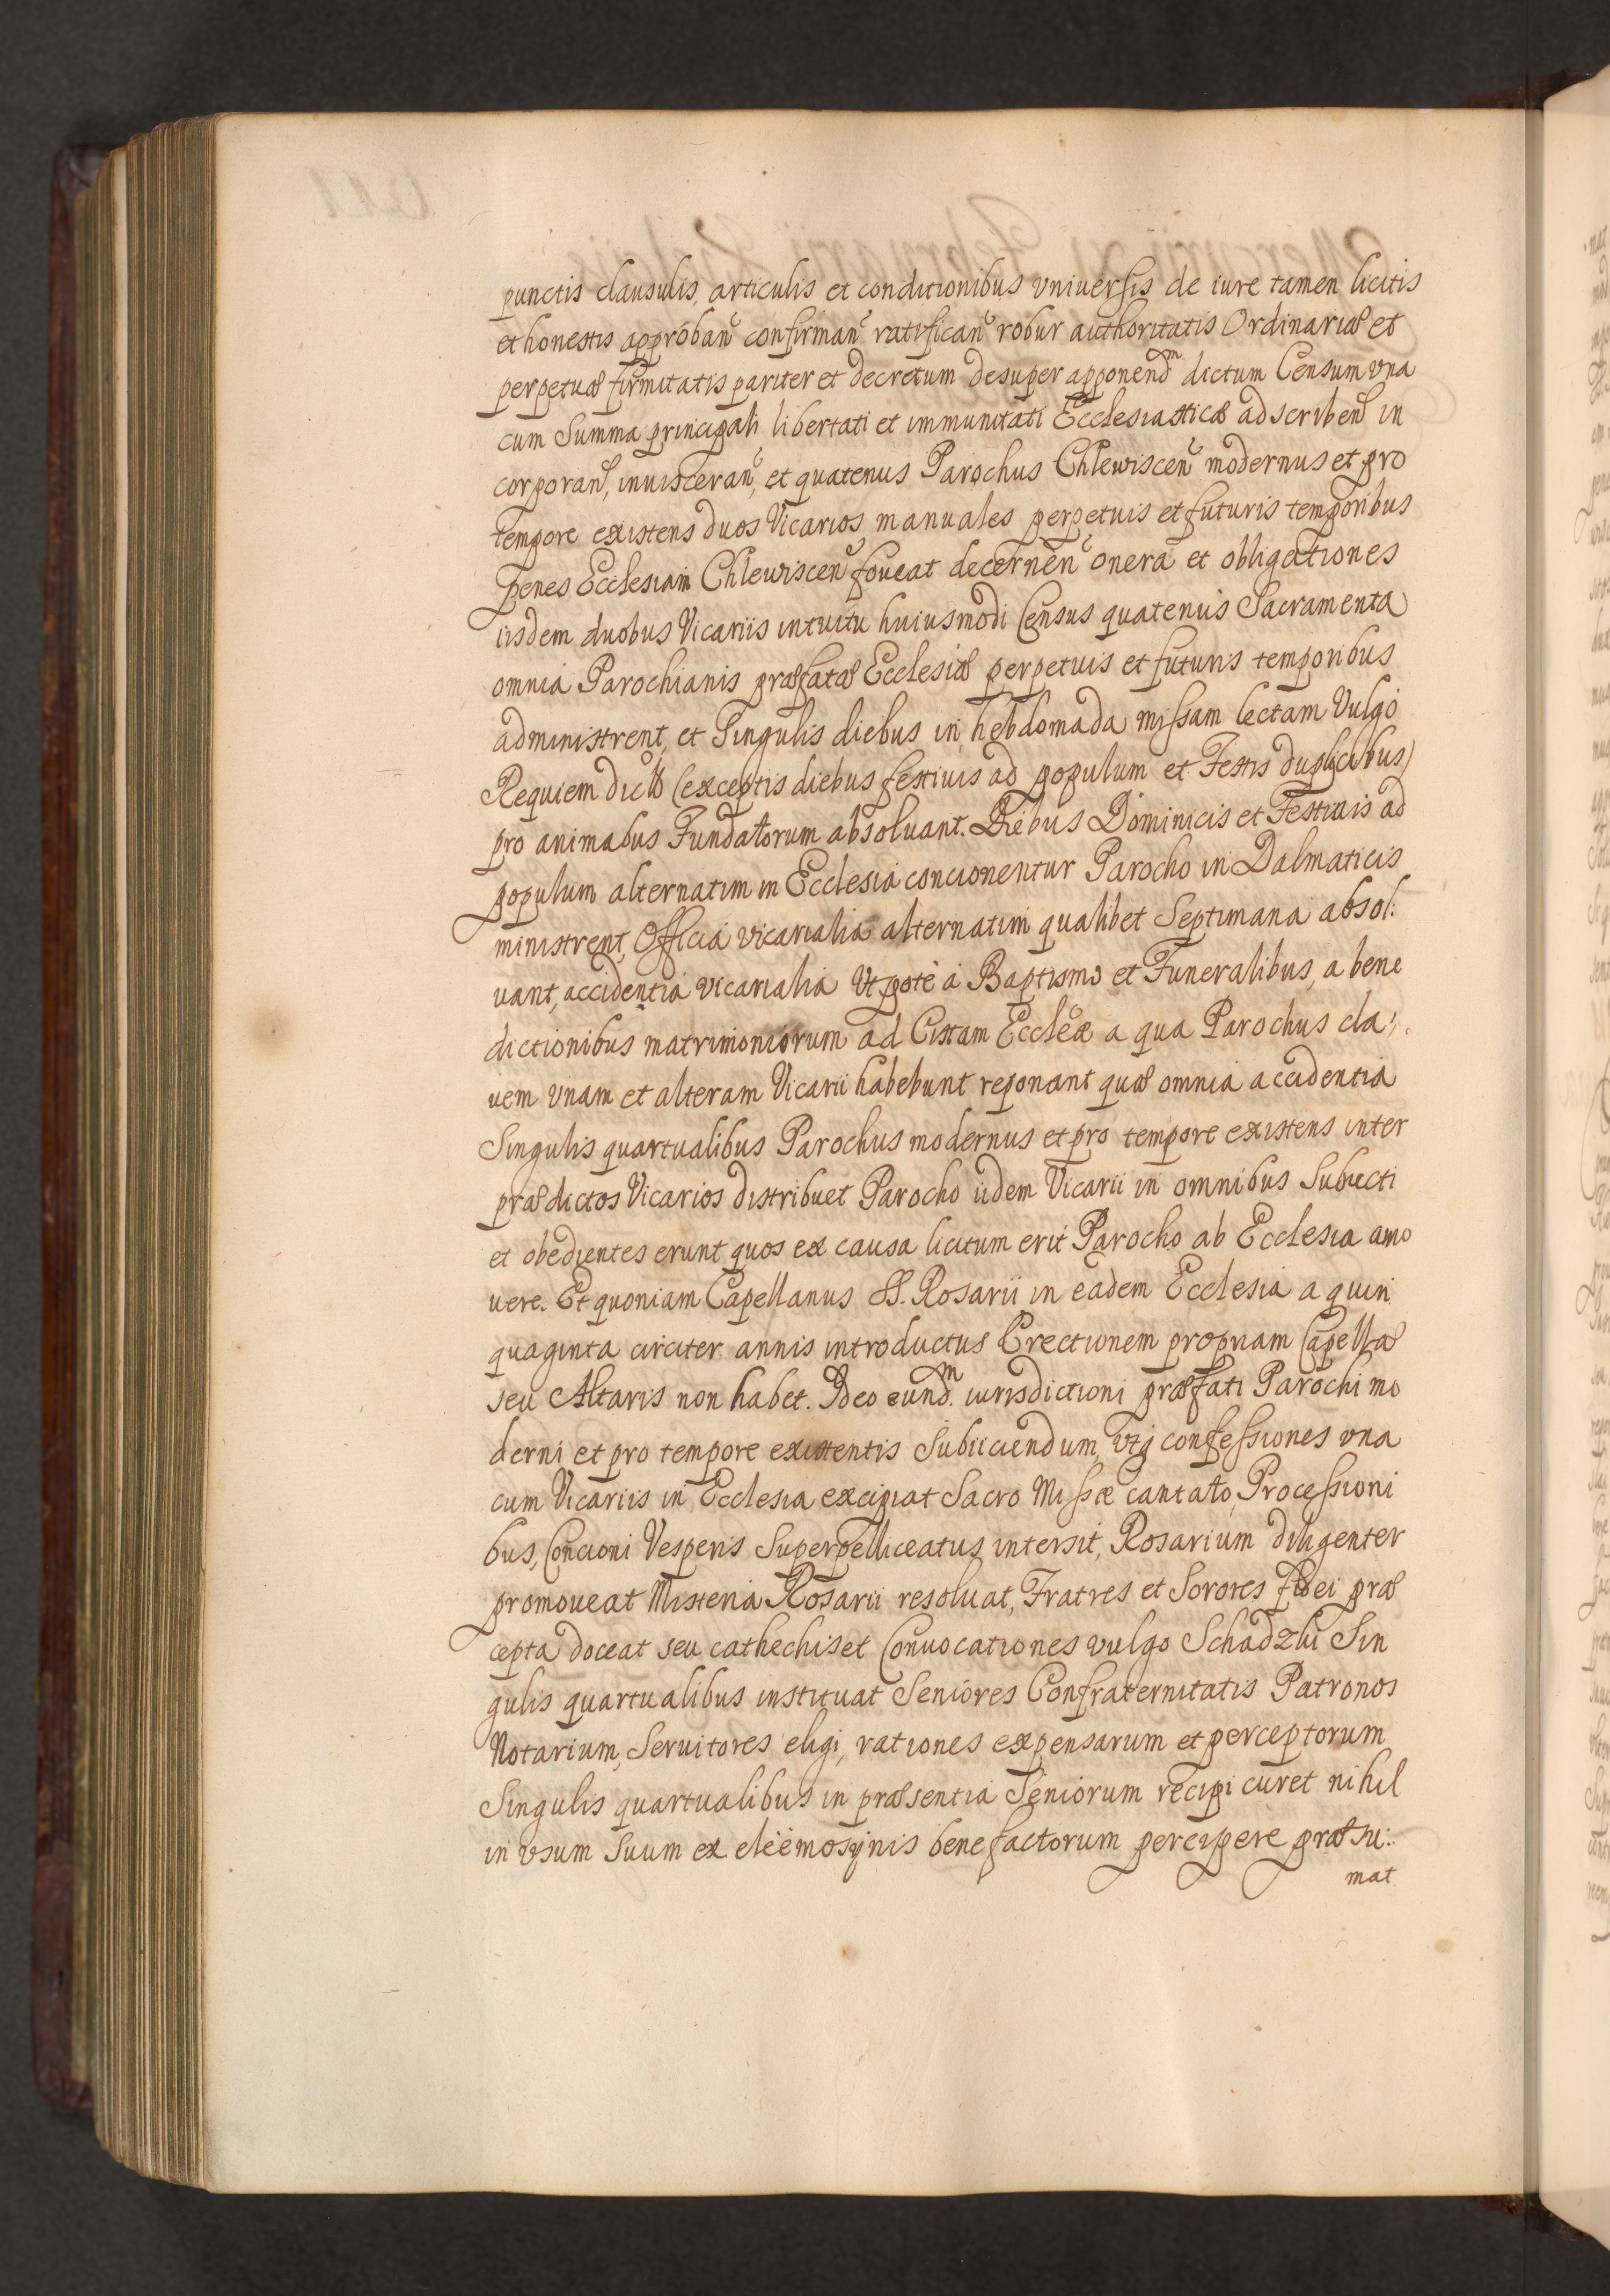 punctis clausulis, articulis et conditionibus vniuersis de iure tamen licitis
et honestis approban confirman ratifican robur authoritatis Ordinariæ et
perpetuæ firmitatis pariter et decretum desuper apponendm dictum Censum vna
cum Summa principali libertati et immunitati Ecclesiasticæ adscriben in
corporan, inuisceran, et quatenus Parochus Chlewiscen modernus et pro
tempore existens duos Vicarios manuales perpetuis et futuris temporibus
penes Ecclesiam Chlewiscen foueat decernen onera et obligationes
iisdem duobus Vicariis intuitu huiusmodi Census quatenus Sacramenta
omnia Parochianis præfatæ Ecclesiæ perpetuis et futuris temporibus
administrent, et Singulis diebus in hebdomada missam lectam Vulgo
Requiem dictã (exceptis diebus festiuis ad populum et Festis duplicibus)
pro animabus Fundatorum absoluant. Diebus Dominicis et Festiuis ad
populum alternatim in Ecclesia concionentur Parocho in Dalmaticis
ministrent, Officia vicarialia alternatim qualibet Septimana absol:
uant, accidentia vicarialia Vtpote à Baptismo et Funeralibus, a bene
dictionibus matrimoniorum ad Cistam Eccleæ a qua Parochus cla:
uem vnam et alteram Vicarii habebunt reponant quæ omnia accidentia
Singulis quartualibus Parochus modernus et pro tempore existens inter
prædictos Vicarios distribuet Parocho iidem Vicarii in omnibus Subiecti
et obedientes erunt quos ex causa licitum erit Parocho ab Ecclesia amo
uere. Et quoniam Capellanus SS. Rosarii in eadem Ecclesia a quin
quaginta circiter annis introductus Erectionem propriam Capellæ
seu Altaris non habet. Ideo eundm. iurisdictioni præfati Parochi mo
derni et pro tempore existentis Subiiciendum, vtq confessiones vna
cum Vicariis in Ecclesia excipiat Sacro Missæ cantato, Processioni
bus, Concioni Vesperis Superpelliceatus intersit, Rosarium diligenter
promoueat Misteria Rosarii resoluat, Fratres et Sorores fidei præ
cepta doceat seu cathechiset Conuocationes vulgo Schadzki Sin
gulis quartualibus instituat Seniores Confraternitatis Patronos
Notarium, Seruitores eligi, rationes expensarum et perceptorum
Singulis quartualibus in præsentia Seniorum recipi curet nihil
in vsum Suum ex eleëmosÿnis benefactorum percipere præsu:
mat